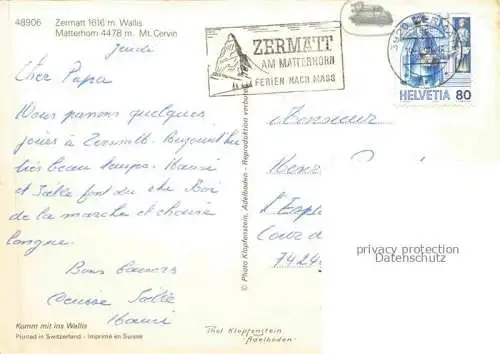 48906 Zermatt 1616 m. Wallis
Matterhorn 4478 m. Mt. Cervin
jeudi
Cher Papa
Nous passons quelques
jours à Zermatt. Aujourd'hui
très beau temps.
et Joëlle font du
de la marche et chaise
longue.
Bons baisers
Joëlle
Komm mit ins Wallis
Printed in Switzerland - Imprimé en Suisse
© Photo Klopfenstein, Adelboden - Reproduktion verboten
Thol Klopfenstein
Adelboden
ZERMATT
AM MATTERHORN
FERIEN NACH MASS
3920
HELVETIA 80
Monsieur
Henri
l'
Cour
7424
privacy protection
Datenschutz